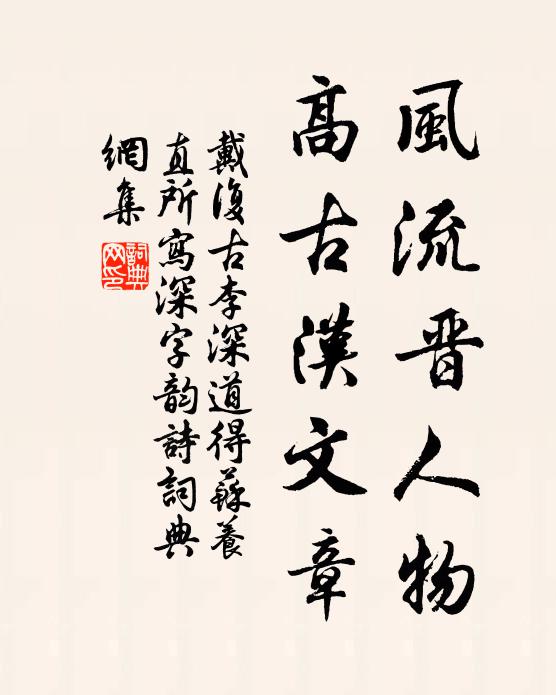 風流晋人物
高古漢文章
戴復古李深道得蘇養
直所寫深字韵詩詞典
網集
詞典
网印